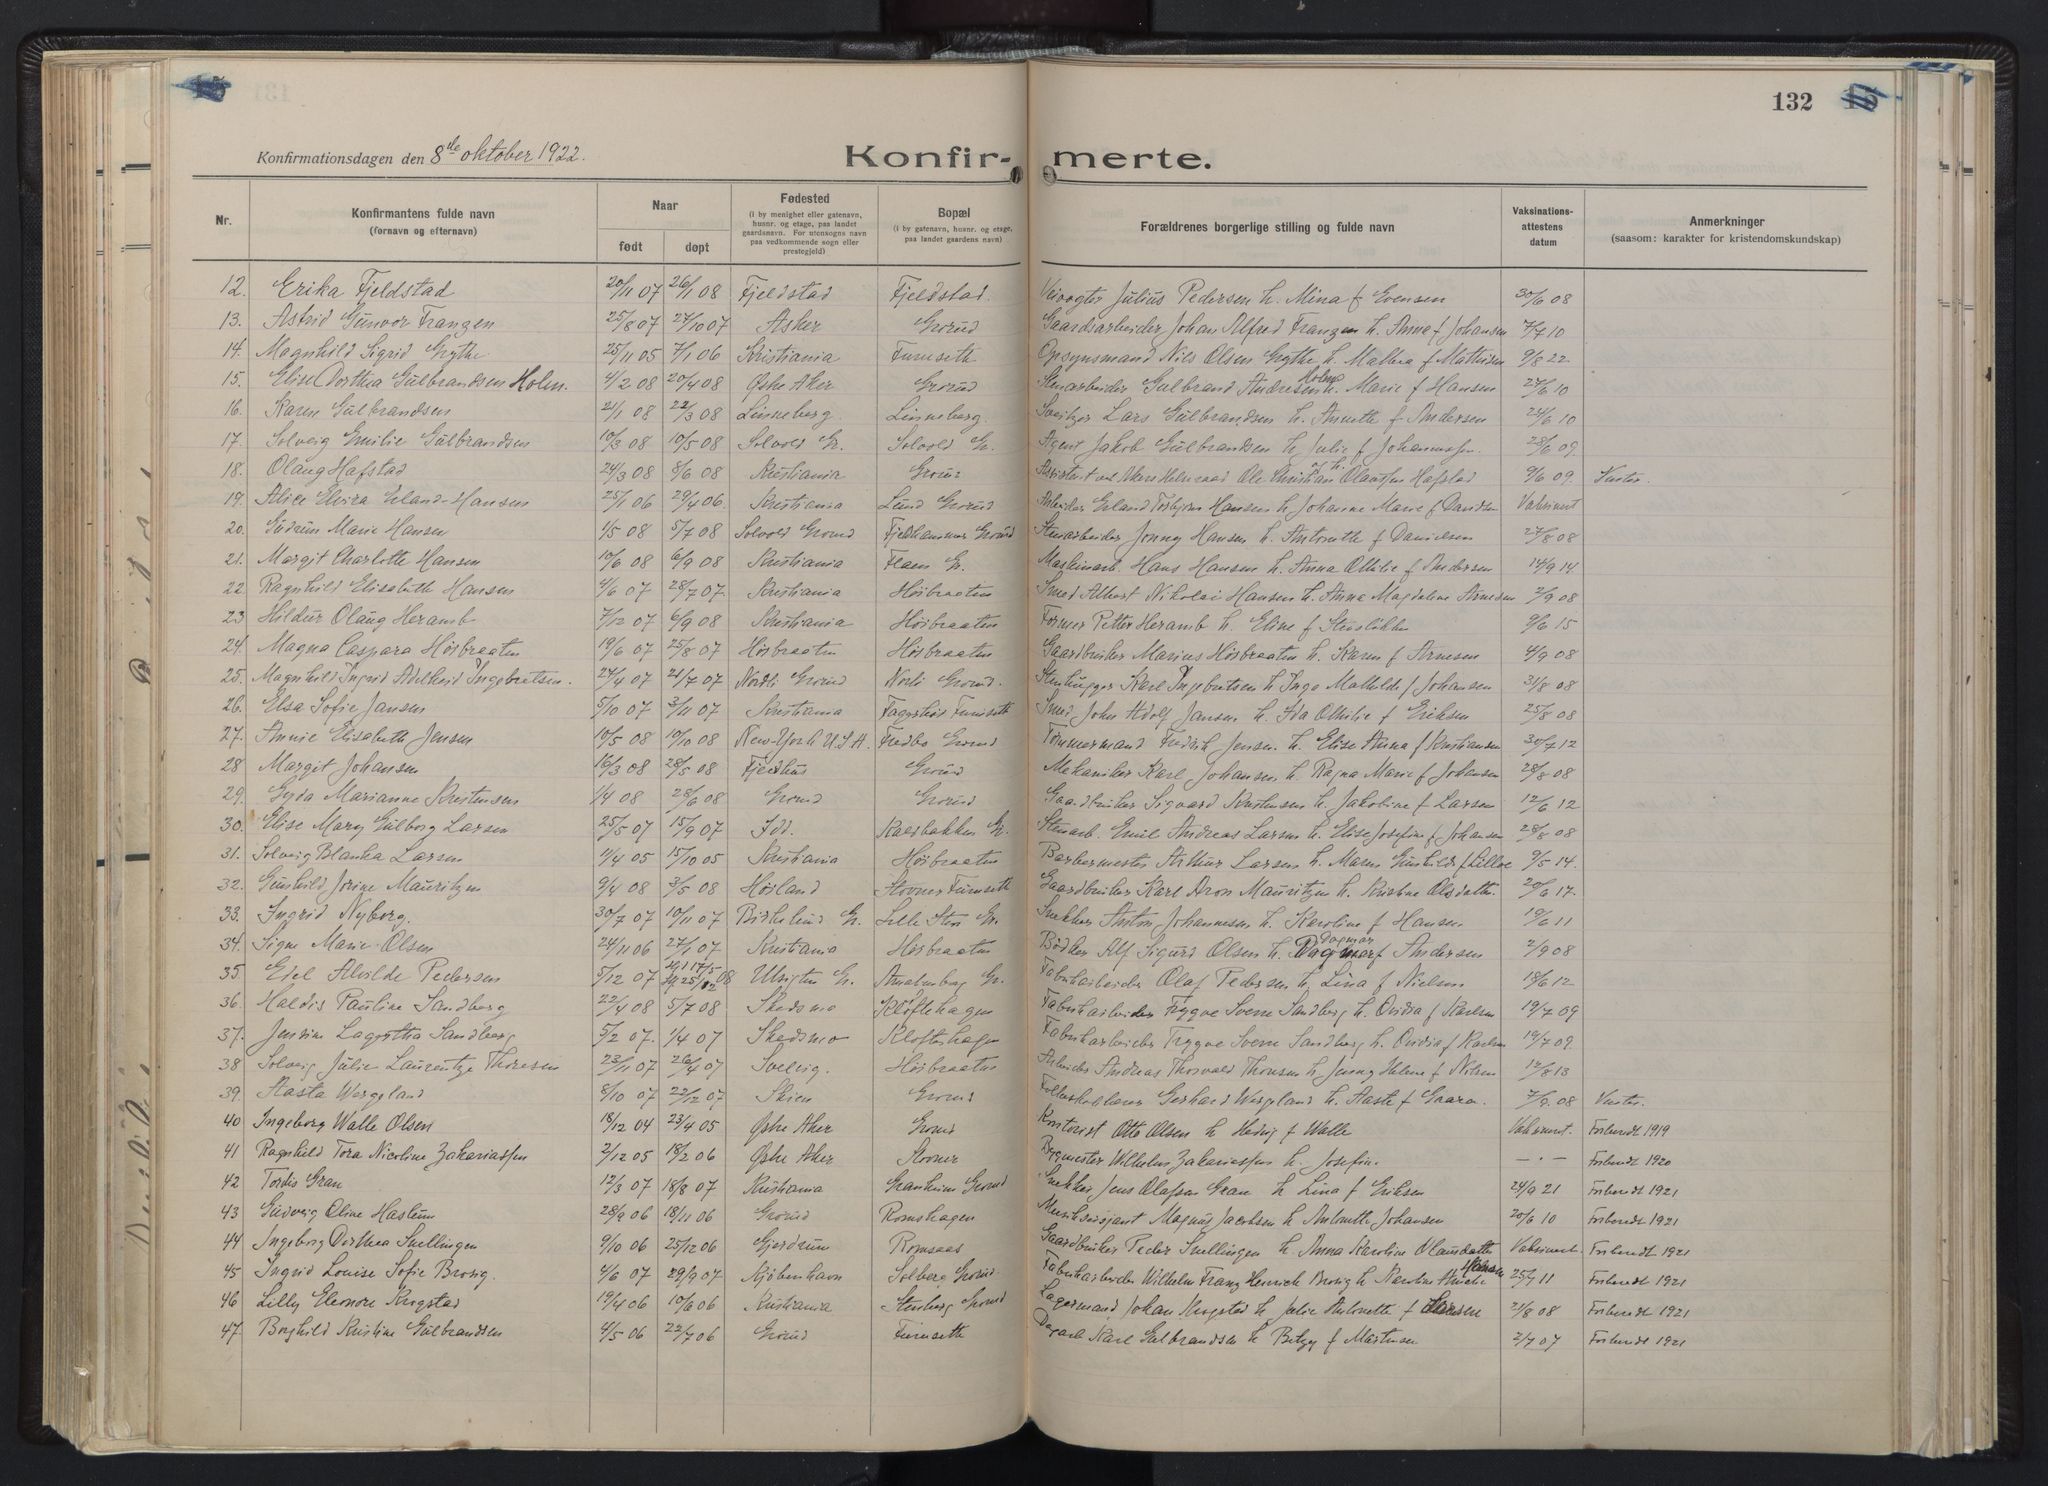 132
Konfirmationsdagen den 8de oktober 1922.
Konfir-
merte.
Nr.
Konfirmantens fulde navn
(fornavn og efternavn)
Naar
født
døpt
Fødested
(i by menighet eller gatenavn,
husnr. og etage, paa landet
gaardsnavn. For utensogns navn
paa vedkommende sogn eller
prestegjeld)
Bopæl
(i by gatenavn, husnr. og etage,
paa landet gaardens navn)
Forældrenes borgerlige stilling og fulde navn
Vaksinations-
attestens
datum
Anmerkninger
(saasom: karakter for kristendomskundskap)
12. Erika Fjeldstad 20/11 07 26/1 08 Fjeldstad Fjeldstad. Veivogter Julius Pedersen h. Mina f Evensen 30/6 08
13. Astrid Gunvor Franzen 25/8 07 27/10 07 Asker Grorud Gaardsarbeider Johan Alfred Franzen h. Anna f Johansen 7/7 10
14. Magnhild Sigrid Grythe 25/11 05 7/1 06 Kristiania Furuseth Opsynsmand Nils Olsen Grythe h. Mathea f Mathisen 9/8 22
15. Elise Dorthea Gulbrandsen Holm. 4/2 08 20/4 08 Østre Aker Grorud Stenarbeider Gulbrand Andresen Holm h. Marie f Hansen 27/6 10
16. Karen Gulbrandsen 21/1 08 22/3 08 Linneberg. Linneberg. Sveitzer Lars Gulbrandsen h. Annette f Andersen 24/6 10
17. Solveig Emilie Gulbrandsen 10/3 08 10/5 08 Solvold Gr. Solvold Gr. Agent Jakob Gulbrandsen h Julie f Johannessen. 28/6 09.
18. Olaug Hafstad 24/3 08 8/6 08 Kristiania Grorud Assistent ved Akers Helseraad Ole Christian Olaussen Hafstad 9/6 09.
19. Alice Elvira Erland-Hansen 25/1 06 29/4 06. Kristiania Lund Grorud Arbeider Erland Torbjørn Hansen h Johanne Marie f Davidsen Vaksinert
20. Gudrun Marie Hansen 1/5 08 5/7 08 Solvold Grorud Fjeldhammer Grorud Stenarbeider Jonny Hansen h. Antonette f Danielsen 27/8 08
21. Margit Charlotte Hansen 10/6 08 6/9 08 Kristiania Flaen Gr. Maskinarb. Hans Hansen h. Anna Othilie f Andersen 14/9 14
22. Ragnhild Elisabeth Hansen 4/6 07 28/7 07. Kristiania Høibraaten Smed Albert Nikolai Hansen h. Anna Magdalene Arnesen 2/9 08
23 Hildur Olaug Heramb 7/12 07 6/9 08 Kristiania Høibraaten Former Petter Heramb h. Eline f Stensløkken 9/6 15
24. Magna Caspara Høibraaten 19/6 07 25/8 07 Høibraaten Høibraaten Gaardbruker Marius Høibraaten h. Karen f Arnesen 4/9 08
25. Magnhild Ingrid Adelheid Ingebretsen. 24/4 07 21/7 07 Nordli Grorud Nordli Grorud. Stenhugger Karl Ingebretsen h Inga Mathilde f Johansen 31/8 08
26. Elsa Sofie Jansen 5/10 07 3/11 07 Kristiania Fagerhøi Furuseth Smed John Adolf Jansen h. Ida Othilie f Eriksen 25/8 08
27. Annie Elisabeth Jensen 10/5 08 10/10 08 New-York U.S.A. Fredbo Grorud Tømmermand Fredrik Jensen. h. Elise Anna f Kristiansen 30/7 12
28 Margit Johansen 16/3 08 28/5 08 Fjeldhus Grorud Mekaniker Karl Johansen h. Ragna Marie f Johansen 28/8 08
29. Gyda Marianne Kristensen 1/4 08 28/6 08 Grorud Grorud Gaardbruker Sigvard Kristensen h. Jakobine f Larsen 12/6 12
30. Elise Mary Gulborg Larsen 25/5 07 15/9 07 Idd. Kaasbakken Gr. Stenarb. Emil Andreas Larsen h. Elise Josefine f Johansen 28/8 08
31. Solveig Blanka Larsen 11/4 05 15/10 05 Kristiania Høibraaten Barbermester Arthur Larsen h. Maren Gunhild f Lilloe 9/5 14.
32. Gunhild Jorine Mauritzen 9/4 08 3/5 08 Høiland Stovner Furuseth Gaardbruker Karl Aron Mauritzen h. Kristine Olsdatter. 20/6 17.
33. Ingrid Nyborg. 30/7 07 10/11 07 Birkelund Gr. Lille Stoe Gr. Snekker Anton Johannesen h. Karoline f Hansen 19/6 11
34. Signe Marie Olsen 24/11 06 27/1 07 Kristiania Høibraaten Bødker Alf Sigurd Olsen h. Dagmar f Andersen 2/9 08
35 Edel Alvilde Pedersen 5/12 07 Utsigten Gr. Amalienborg Gr. Fabrikarbeider Olaf Pedersen h. Lina f Nielsen 18/6 12
36. Haldis Pauline Sandberg 22/4 08 5/7 08 Skedsmo Kløftehagen Fabrikarbeider Trygve Sverre Sandberg h. Ovidia f Karlsen 19/7 09
37. Jensine Lagertha Sandberg 5/2 07. 1/4 07 Skedsmo Kloftehagen Fabrikarbeider Trygve Sverre Sandberg h. Ovidia f Karlsen 19/7 09.
38 Solveig Julie Laurentze Thoresen 23/11 07 26/4 07 Svelvig. Høibraaten Arbeider Andreas Thorvald Thoresen h Jenny Helene f Nilsen 12/8 13
39. Aasta Wergeland 8/10 07 22/12 07 Skien Grorud Folkeskolelærer Gerhard Wergeland h. Aasta f Graarn. 7/9. 08
40 Ingeborg Walle Olsen 18/12 04 23/4 05 Østre Aker Grorud Kontorist Otto Olsen h Hedvig f Walle Vaksinert. Forberedt 1919
41 Ragnhild Tora Nicoline Zakariassen 2/12 05 18/2 06 Østre Aker Stovner Bygmester Wilhelm Zakariassen h. Josefine. — . — Forberedt 1920
42 Tordis Gran 12/3 07 18/8 07 Kristiania Granheim Grorud Snekker Jens Olafsen Gran h Lina f Eriksen 24/9 21 Forberedt 1921
43 Gudveig Oline Haslum 28/9 06 18/11 06 Grorud Romshagen Musiksersjant Magnus Jacobsen h Antonette Johansen 20/6 10 Forberedt 1921
44 Ingeborg Dorthea Snellingen 9/10 06 25/12 06 Gjerdrum Romsaas Gaardbruker Peder Snellingen h. Anna Karoline Olausdatter Vaksinert Forberedt 1921
45 Ingrid Louise Sofie Brosig. 4/6 07 29/9 07 Kjøbenhavn Solberg Grorud Fabrikarbeider Wilhelm Franz Henrich Brosig h Karoline Amalie Hansen 25/7 11 Forberedt 1921
46 Lilly Eleonore Krogstad 19/4 06 10/6 06 Kristiania Stenberg Grorud Lagermand Johan Krogstad h Julie Antonette f Larsen 21/8 08 Forberedt 1921
47. Borghild Kristine Gulbrandsen 4/5 06 22/7 06 Grorud Furuseth Dagarb Karl Gulbrandsen h Betzy f Martinsen 2/7 07 Forberedt 1921